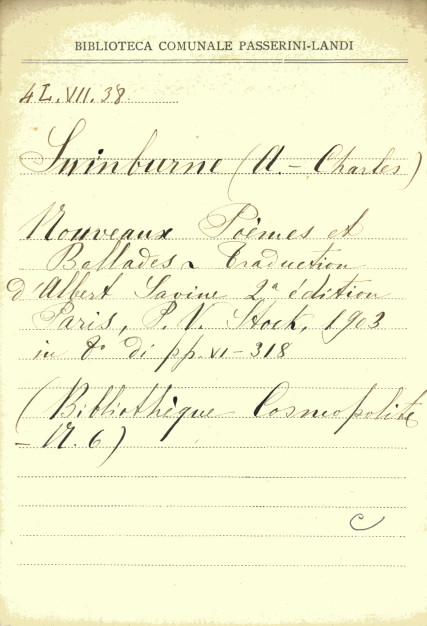 BIBLIOTECA COMUNALE PASSERINI-LANDI
4L.VII.38
Swinburne (A. - Charles)
Nouveaux Poèmes et
Ballades - Traduction
d'Albert Savine 2ª édition
Paris, P. V. Stock, 1903
in 8° di pp. VI-318
(Bibliothèque Cosmopolite
- N. 6)
C